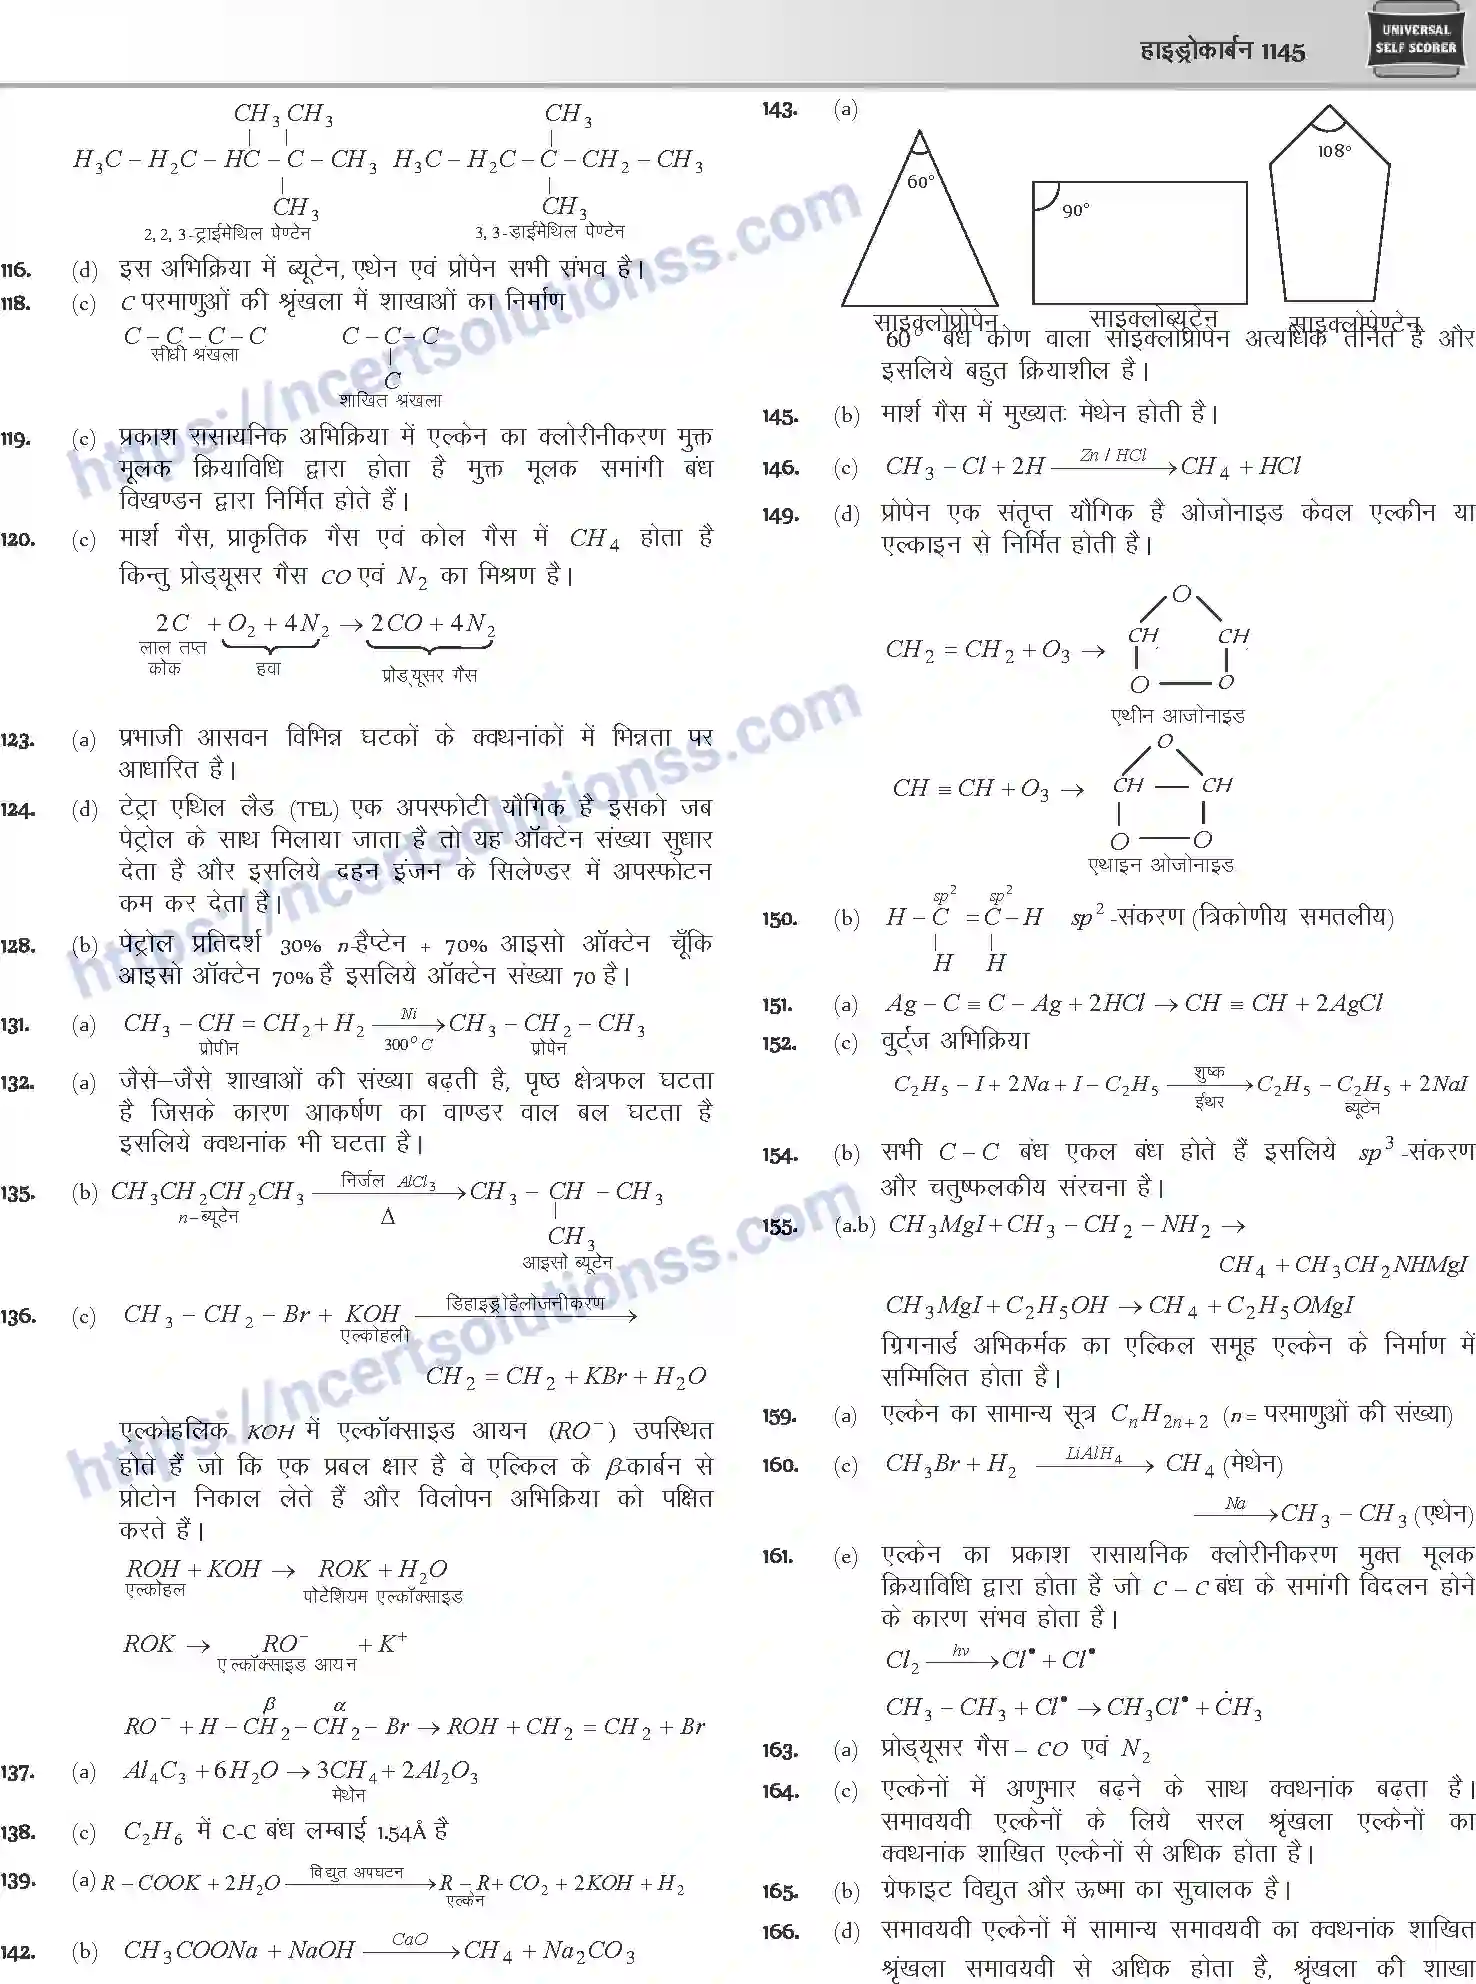 हाइड्रोकार्बन 1145
UNIVERSAL
SELF SCORER
CH3 CH3
H3C – H2C – HC – C – CH3
CH3
2, 2, 3-ट्राईमेथिल पेण्टेन
CH3
H3C – H2C – C – CH2 – CH3
CH3
3, 3-डाईमेथिल पेण्टेन
116. (d) इस अभिक्रिया में ब्यूटेन, एथेन एवं प्रोपेन सभी संभव है।
118. (c) C परमाणुओं की श्रृंखला में शाखाओं का निर्माण
C – C – C – C
सीधी श्रंखला
C – C – C
C
शाखित श्रंखला
119. (c) प्रकाश रासायनिक अभिक्रिया में एल्केन का क्लोरीनीकरण मुक्त
मूलक क्रियाविधि द्वारा होता है मुक्त मूलक समांगी बंध
विखण्डन द्वारा निर्मित होते हैं।
120. (c) मार्श गैस, प्राकृतिक गैस एवं कोल गैस में CH4 होता है
किन्तु प्रोड्यूसर गैस CO एवं N2 का मिश्रण है।
2C + O2 + 4N2 → 2CO + 4N2
लाल तप्त
कोक
हवा
प्रोड्यूसर गैस
123. (a) प्रभाजी आसवन विभिन्न घटकों के क्वथनांकों में भिन्नता पर
आधारित है।
124. (d) टेट्रा एथिल लैड (TEL) एक अपस्फोटी यौगिक है इसको जब
पेट्रोल के साथ मिलाया जाता है तो यह ऑक्टेन संख्या सुधार
देता है और इसलिये दहन इंजन के सिलेण्डर में अपस्फोटन
कम कर देता है।
128. (b) पेट्रोल प्रतिदर्श 30% n-हैप्टेन + 70% आइसो ऑक्टेन चूँकि
आइसो ऑक्टेन 70% है इसलिये ऑक्टेन संख्या 70 है।
131. (a) CH3 – CH = CH2 + H2 Ni 300°C → CH3 – CH2 – CH3
प्रोपीन
प्रोपेन
132. (a) जैसे–जैसे शाखाओं की संख्या बढ़ती है, पृष्ठ क्षेत्रफल घटता
है जिसके कारण आकर्षण का वाण्डर वाल बल घटता है
इसलिये क्वथनांक भी घटता है।
135. (b) CH3CH2CH2CH3 निर्जल AlCl3 Δ → CH3 – CH – CH3
n–ब्यूटेन
CH3
आइसो ब्यूटेन
136. (c) CH3 – CH2 – Br + KOH डिहाइड्रोहैलोजनीकरण →
एल्कोहली
CH2 = CH2 + KBr + H2O
एल्कोहलिक KOH में एल्कॉक्साइड आयन (RO–) उपस्थित
होते हैं जो कि एक प्रबल क्षार है वे एल्किल के β-कार्बन से
प्रोटोन निकाल लेते हैं और विलोपन अभिक्रिया को पक्षित
करते हैं।
ROH + KOH → ROK + H2O
एल्कोहल
पोटेशियम एल्कॉक्साइड
ROK → RO– + K+
एल्कॉक्साइड आयन
β α
RO– + H – CH2 – CH2 – Br → ROH + CH2 = CH2 + Br
137. (a) Al4C3 + 6H2O → 3CH4 + 2Al2O3
मेथेन
138. (c) C2H6 में C-C बंध लम्बाई 1.54Å है
139. (a) R – COOK + 2H2O विद्युत अपघटन → R – R + CO2 + 2KOH + H2
एल्केन
142. (b) CH3COONa + NaOH CaO → CH4 + Na2CO3
143. (a)
60°
90°
108°
साइक्लोप्रोपेन
साइक्लोब्यूटेन
साइक्लोपेण्टेन
60° बंध कोण वाला साइक्लोप्रोपेन अत्यधिक तनित है और
इसलिये बहुत क्रियाशील है।
145. (b) मार्श गैस में मुख्यतः मेथेन होती है।
146. (c) CH3 – Cl + 2H Zn / HCl → CH4 + HCl
149. (d) प्रोपेन एक संतृप्त यौगिक है ओजोनाइड केवल एल्कीन या
एल्काइन से निर्मित होती है।
O
CH2 = CH2 + O3 → CH CH
O O
एथीन आजोनाइड
O
CH ≡ CH + O3 → CH — CH
O O
एथाइन ओजोनाइड
sp2 sp2
150. (b) H – C = C – H sp2 -संकरण (त्रिकोणीय समतलीय)
H H
151. (a) Ag – C ≡ C – Ag + 2HCl → CH ≡ CH + 2AgCl
152. (c) वुर्ट्ज अभिक्रिया
C2H5 – I + 2Na + I – C2H5 शुष्क ईथर → C2H5 – C2H5 + 2NaI
ब्यूटेन
154. (b) सभी C – C बंध एकल बंध होते हैं इसलिये sp3 -संकरण
और चतुष्फलकीय संरचना है।
155. (a.b) CH3MgI + CH3 – CH2 – NH2 →
CH4 + CH3CH2NHMgI
CH3MgI + C2H5OH → CH4 + C2H5OMgI
ग्रिगनार्ड अभिकर्मक का एल्किल समूह एल्केन के निर्माण में
सम्मिलित होता है।
159. (a) एल्केन का सामान्य सूत्र CnH2n+2 (n = परमाणुओं की संख्या)
160. (c) CH3Br + H2 LiAlH4 → CH4 (मेथेन)
Na → CH3 – CH3 (एथेन)
161. (e) एल्केन का प्रकाश रासायनिक क्लोरीनीकरण मुक्त मूलक
क्रियाविधि द्वारा होता है जो C – C बंध के समांगी विदलन होने
के कारण संभव होता है।
Cl2 hν → Cl• + Cl•
CH3 – CH3 + Cl• → CH3Cl• + ĊH3
163. (a) प्रोड्यूसर गैस – CO एवं N2
164. (c) एल्केनों में अणुभार बढ़ने के साथ क्वथनांक बढ़ता है।
समावयवी एल्केनों के लिये सरल श्रृंखला एल्केनों का
क्वथनांक शाखित एल्केनों से अधिक होता है।
165. (b) ग्रेफाइट विद्युत और ऊष्मा का सुचालक है।
166. (d) समावयवी एल्केनों में सामान्य समावयवी का क्वथनांक शाखित
श्रृंखला समावयवी से अधिक होता है, श्रृंखला की शाखा
https://ncertsolutionss.com
https://ncertsolutionss.com
https://ncertsolutionss.com